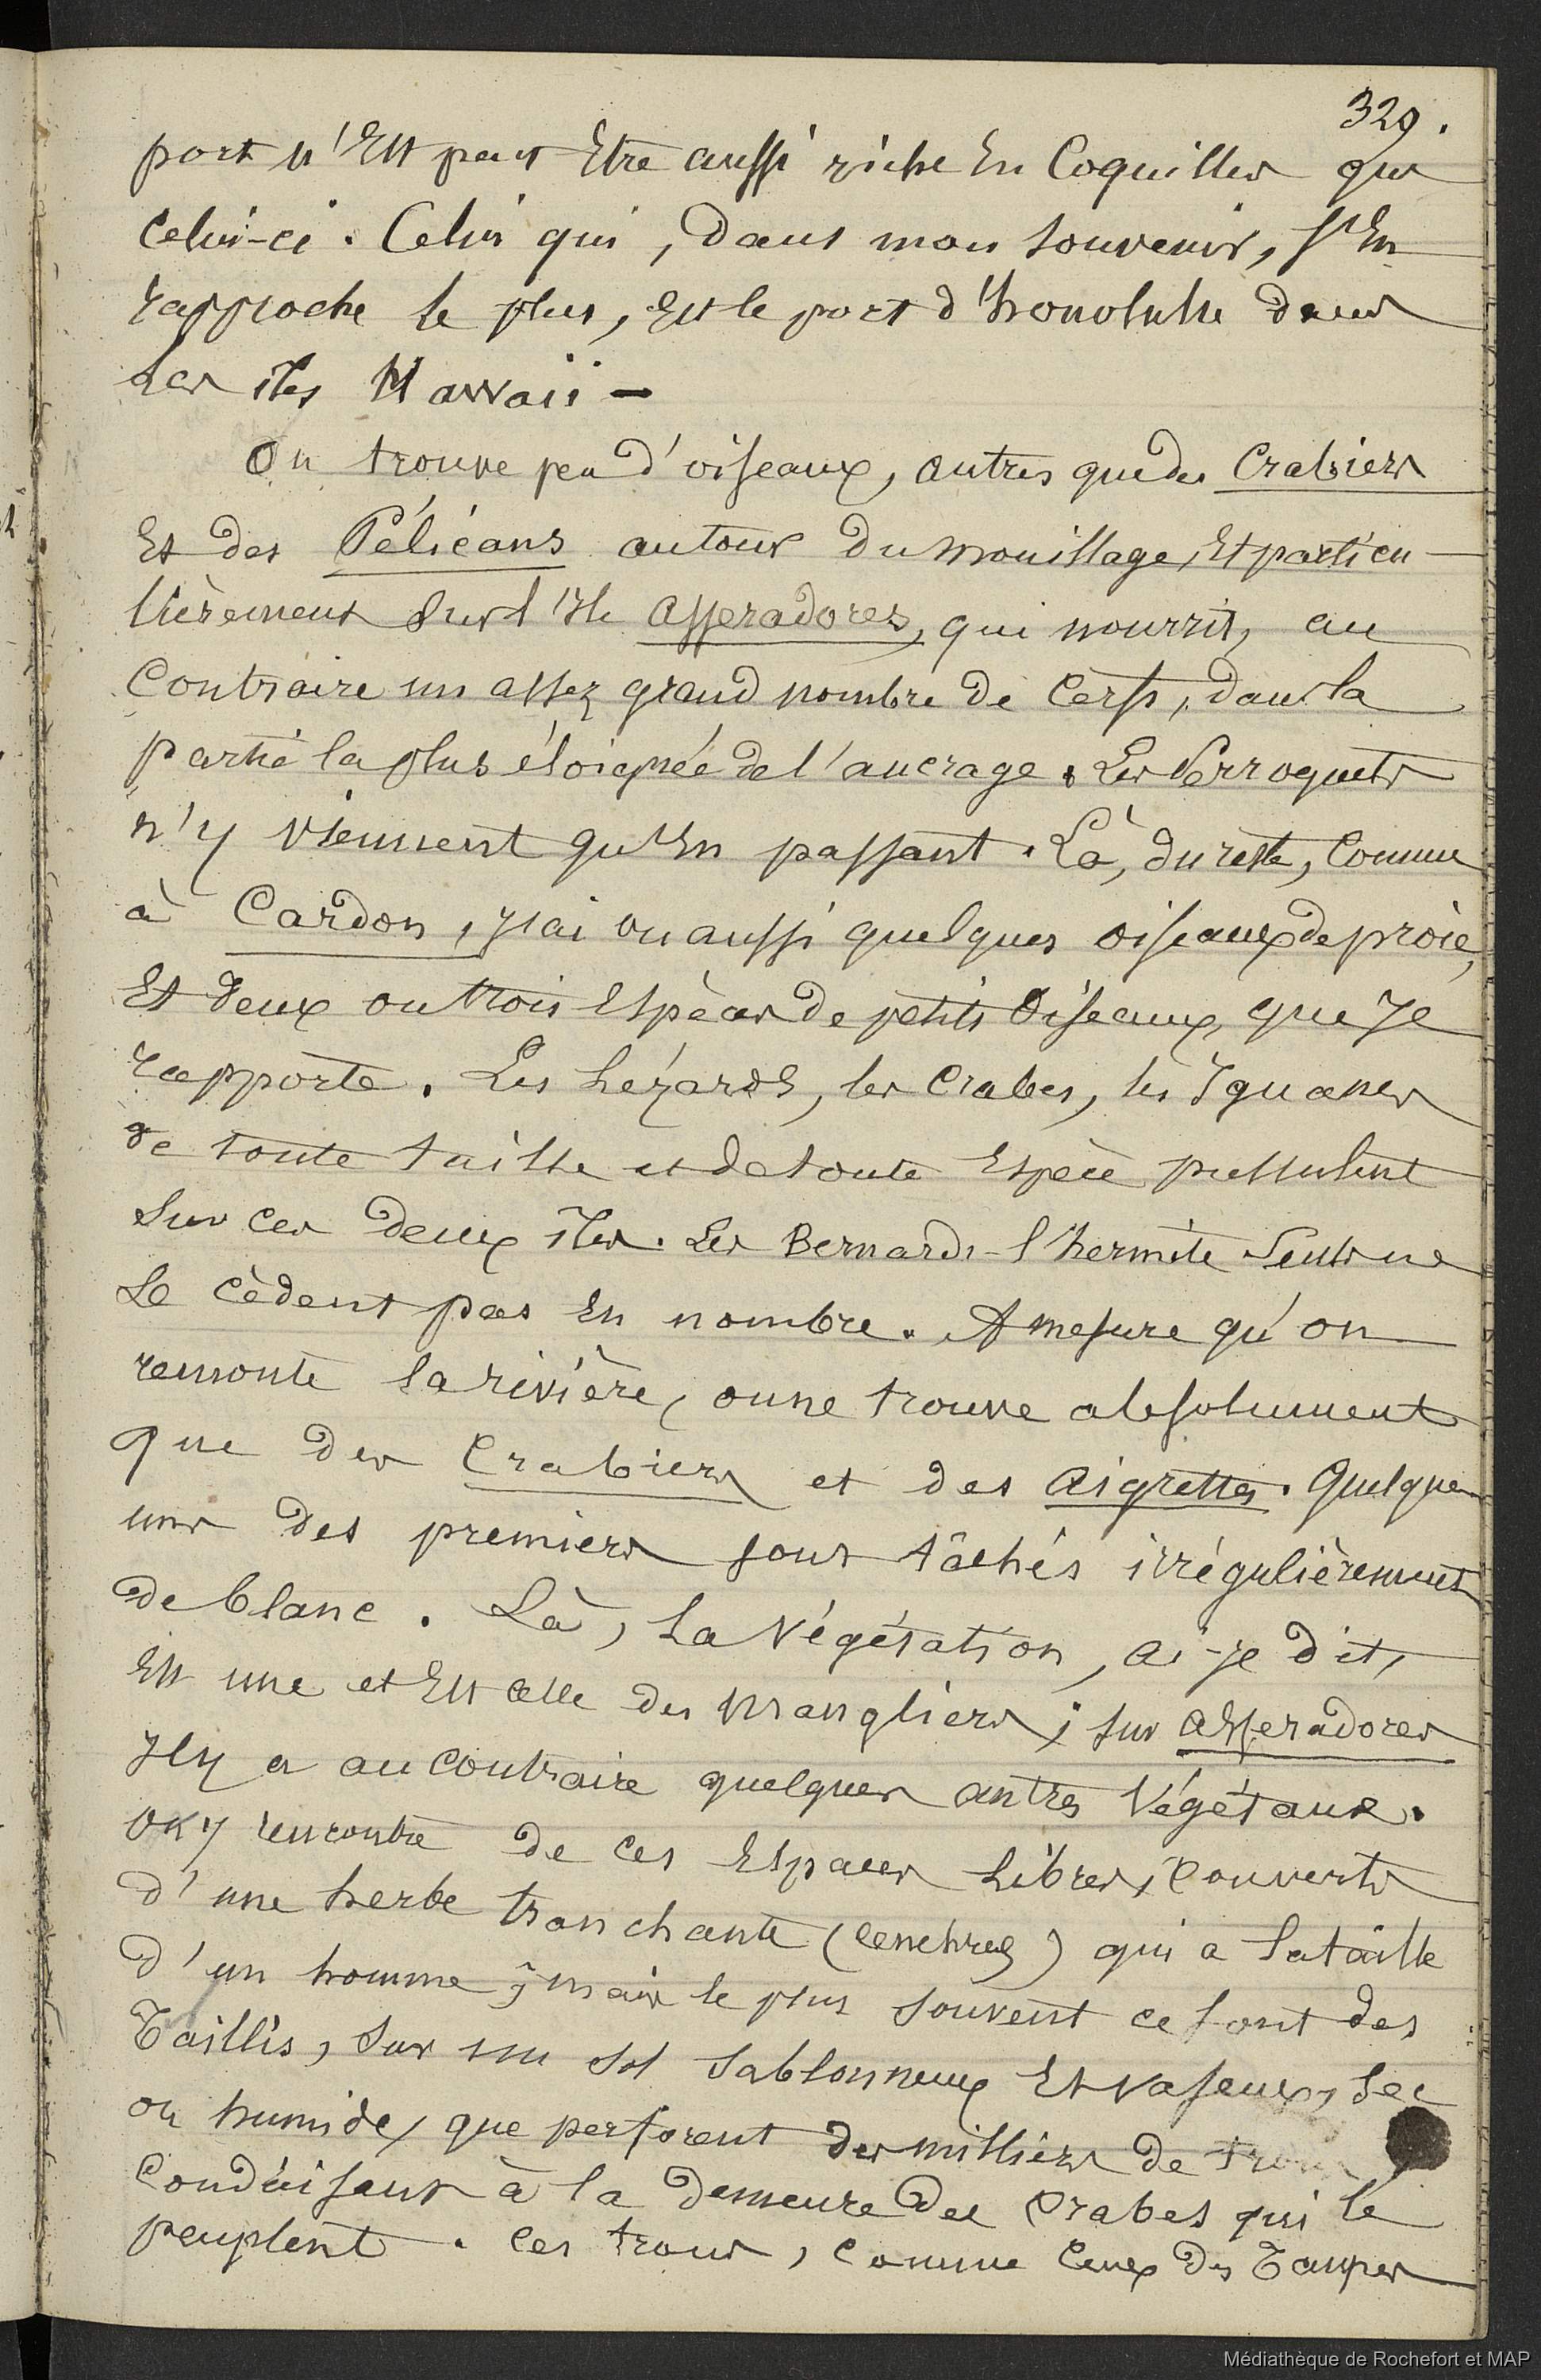 329.
port n'Est peut Etre aussi riche En Coquilles que
Celui-ci. Celui qui, Dans mon souvenir, s'En
rapproche le plus, Est le port d'honolulu dans
Les îles Hawaii —
On trouve peu d'oiseaux, autres que des Crabiers
Et des Pélicans autour Du mouillage, Et particu-
lièrement Sur l'Ile Asseradores, qui nourrit, au
Contraire un assez grand nombre de Cerfs, dans la
partie la plus éloignée de l'ancrage. Les Perroquets
n'y viennent qu'En passant. Là, du reste, Comme
à Cardon, J'ai vu aussi quelques oiseaux de proie,
Et Deux ou trois Espèces de petits Oiseaux, que Je
rapporte. Les Lézards, les Crabes, les Iguanes
de toute taille et de toute Espèce pullulent
Sur Ces Deux îles. Les Bernards-l'hermite Seuls ne
Le Cèdent pas En nombre. A mesure qu'on
remonte la rivière, on ne trouve absolument
que Des Crabiers et des Aigrettes. Quelques
uns des premiers sont tâchés irrégulièrement
de blanc. Là, La Végétation, ai-je dit,
Est une et Est Celle des Mangliers; sur Asseradores
Il y a au Contraire quelques autres Végétaux.
On y rencontre de ces Espaces Libres, Couverts
d'une herbe tranchante (Cenchrus) qui a la taille
d'un homme; mais le plus souvent ce sont des
Taillis, Sur un sol Sablonneux Et Vaseux, Sec
ou humide, que perforent des milliers de trous
Conduisant à la Demeure Des Crabes qui le
peuplent. Ces trous, Comme Ceux Des Taupes
Médiathèque de Rochefort et MAP